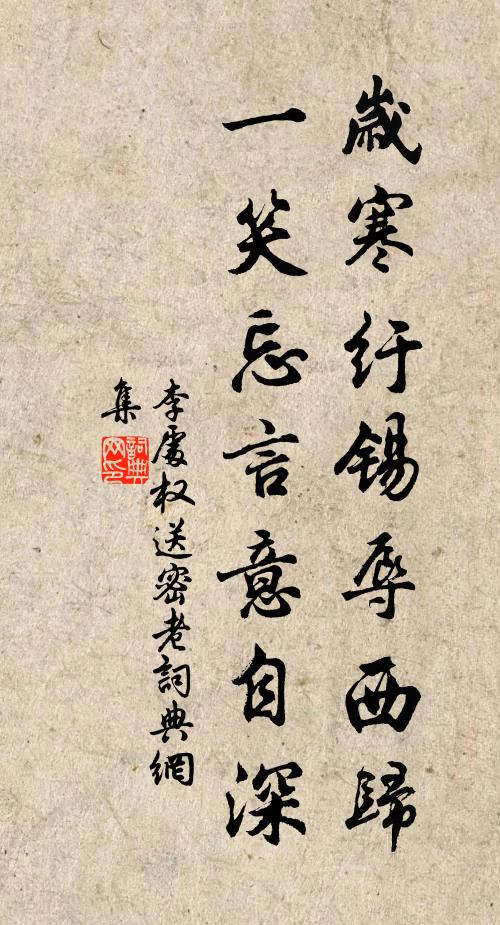 歲寒紆錫辱西歸
一笑忘言意自深
李處权送密老詞典網
集
詞典
网印